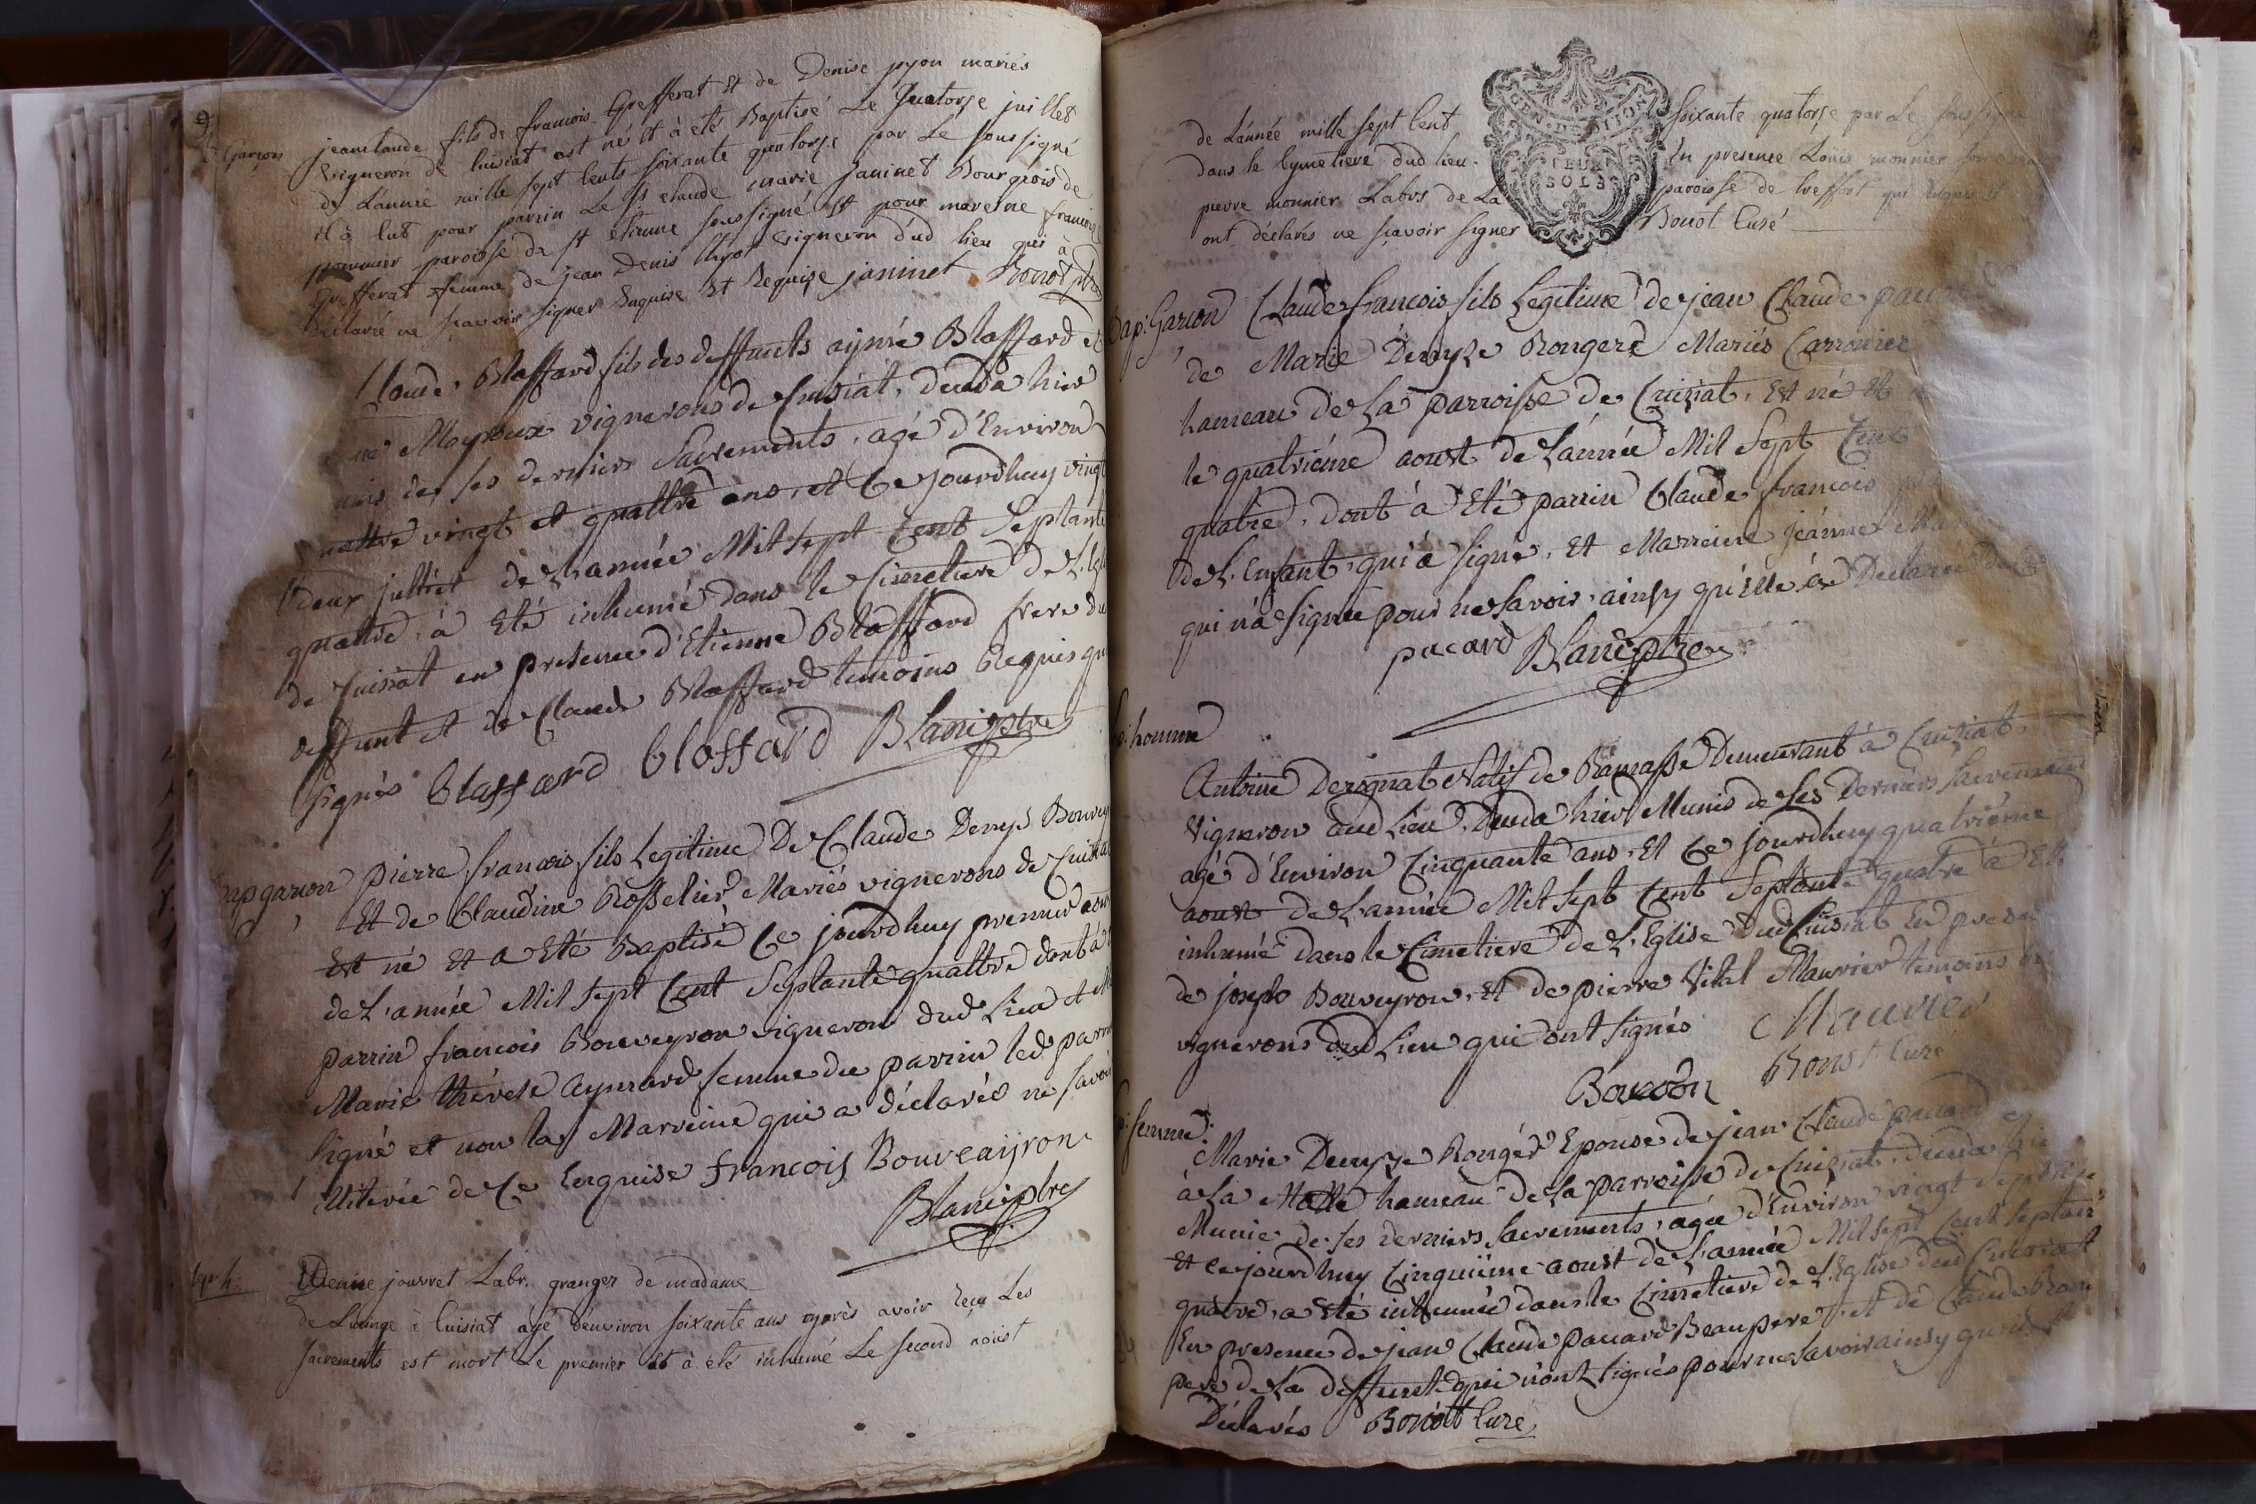 garçon
jeanclaude fils de francois Grefferat et de Denise pyon mariés
vigneron de Cuisiat est né et à eté Baptisé Le Quatorze juillet
de L'année mille sept cents soixante quatorze par Le soussigné
et à eut pour parrin Le Sr claude marie janinet Bourgeois de
paroisse de st etienne soussigné et pour mareine francoise
Grefferat femme de jean Denis vigneron dud lieu qui à
déclaré ne sçavoir signer Enquise et Requise janinet Bonot ptre
Claude Blaffard fils des deffunts aymé Blaffard et
Moyroux vignerons de Cuisiat, deceda hier
munis de ses derniers Sacrements, agé d'Environ
quattre vingt et quattre ans, et Ce jourdhuy vingt
deux julliet de L'année Mil sept Cent Septante
quattre, à Eté inhumé dans le Cimetiere de L'Eglise
de Cuisiat en presence d'Etienne Blaffard frere du
deffunt et de Claude Blaffard temoins Requis qui
signés blaffard bloffard Blanc ptre
Bap garcon pierre francois fils Legitime De Claude Denys Bouveyron
Et de Claudine Rosselier Mariés vignerons de Cuisiat
Est né Et a Eté Baptisé Ce jourdhuy premier aoust
de L'année Mil Sept Cent Septante quattre dont à
parrin francois Bouveyron vigneron dud Lieu et
Marie thérèse aymard femme du parrin led parrin
signé et non la Marreine qui a déclarée ne savoir
de Ce Enquise francois Bouveaijron
Blanc ptre
Denise jouvret Labr. granger de madame
de à Cuisiat âgé d'environ soixante ans après avoir Reçu Les
sacrements est mort Le premier et à eté inhumé Le second aoust
de L'année mille sept Cent soixante quatorze par Le soussigné
dans le Cymetiere dud lieu. En presence Loüis monnier
pierre monnier Labrs de La paroisse de treffort qui Enquis
ont déclarés ne sçavoir signer Bonot Curé
GEN. DE DIJON
DEUX
SOLS
Bap: Garcon Claude francois fils Legitime de jean Claude pacard
de Marie Denyze Rongere Mariés
hameau de La parroisse de Cuiziat, Est né Et
le quatriéme aoust de L'année Mil Sept Cent
quatre, dont à Eté parrin Claude francois
de L'enfant, qui à signé, Et Marreine jeanne
qui n'a signée pour ne savoir, ainsy qu'elle a Declarée
pacard Blanc ptre
homme
Antoine Derognat Natif de Ramasse Demeurant à Cuisiat,
vigneron dud Lieu, Deceda hier Munis de ses Derniers Sacrements
agé d'Environ Cinquante ans, Et Ce jourdhuy quatriéme
aoust de L'année Mil Sept Cent Septante quatre à Eté
inhumé dans le Cimetiere de L'Eglise dud Cuisiat En presence
de joseph Bouveyron, Et de pierre Vital Maurier temoins
vignerons dud Lieu qui ont signés Maurier
Bonot Curé
femme:
Marie Denyze Rongér Epouse de jean Claude pacard
à La hameau de La parroisse de Cuiziat, deceda hier
Munie de ses derniers sacrements, agée d'Environ vingt sept
Et Ce jourdhuy Cinquiéme aoust de L'année Mil Sept Cent Septante
quatre, a Eté inhumée dans le Cimetiere de L'Eglise dud Cuisiat
En presence de jean Claude pacard Beaupere, et de Claude
pere de La deffunte qui n'ont signés pour ne savoir ainsy qu'ils
Déclarés Bonot Curé